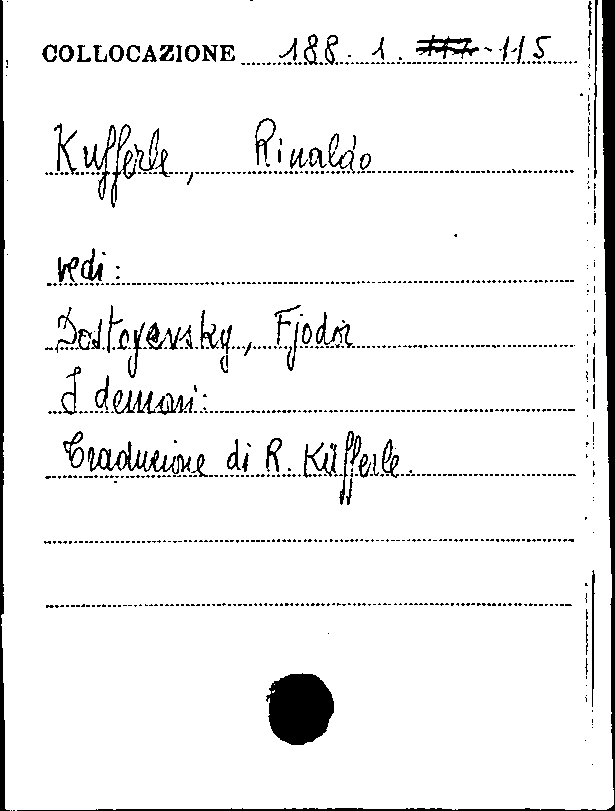 COLLOCAZIONE 188. 1. -115
Kufferle, Rinaldo
vedi:
Dostoyevsky, Fjodor
I demoni:
Traduzione di R. Küfferle.